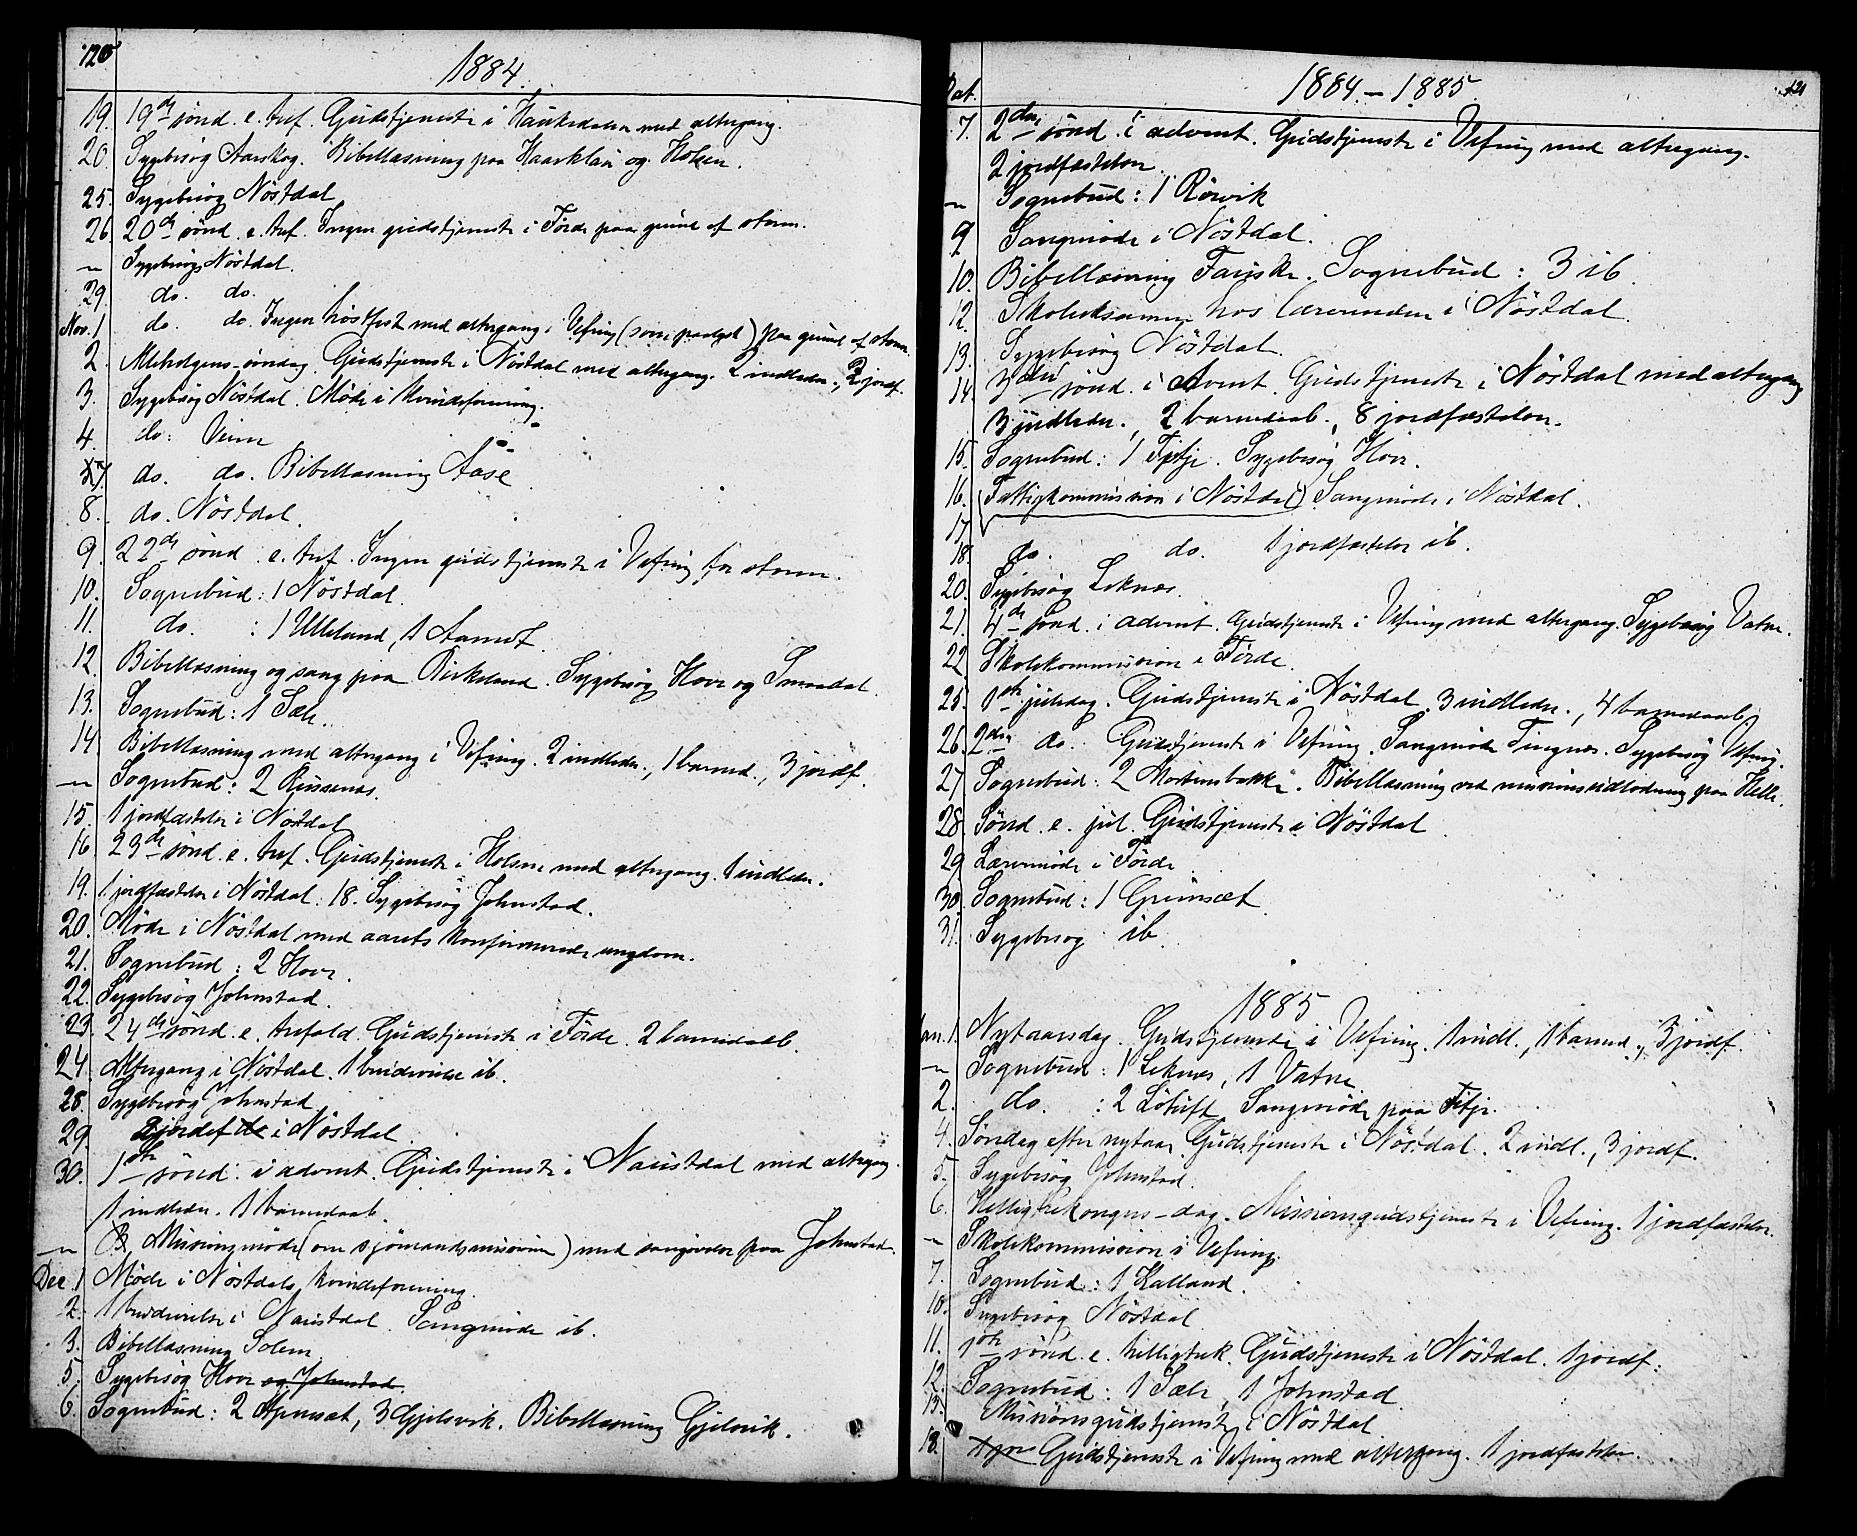 120
1884.
19. 19de sönd. e. tref. Gudstjeneste i Haukedalen med altergang.
20. Sygebesög Aarskog. Bibellæsning paa Haarklau og Holsen.
25. Sygebesög Nöstdal
26. 20de sönd. e. tref. Ingen gudstjeneste i Förde paa grund af storm.
" Sygebesög Nöstdal.
29. do. do.
Nov. 1. do. do. Ingen höstfest med altergang i Vefring (som paalyst) paa grund af storm.
2. Allehelgens-söndag. Gudstjeneste i Nöstdal med altergang. 2 indleder., 2 jordf.
3. Sygebesög Nöstdal. Möde i kvindeforening.
4. do: Veine
7. do. do. Bibellæsning Aase
8. do. Nöstdal.
9. 22de sönd. e. tref. Ingen gudstjeneste i Vefring for storm.
10. Sognebud: 1 Nöstdal.
11. do. : 1 Ulleland, 1 Aamot.
12. Bibellæsning og sang paa Birkeland. Sygebesög Hovr og Smaadal.
13. Sognebud: 1 Sæle.
14. Bibellæsning med altergang i Vefring. 2 indleder., 1 barned., 3 jordf.
" Sognebud: 2 Russenes.
15. 1 jordfæstelse i Nöstdal
16. 23de sönd. e. tref. Gudstjeneste i Holsen med altergang. 1 indleder.
19. 1 jordfæstelse i Nöstdal. 18. Sygebesög Johnstad.
20. Möde i Nöstdal med aarets konfirmerede ungdom.
21. Sognebud: 2 Hovr.
22. Sygebesög Johnstad.
23. 24de sönd. e. trefold. Gudstjeneste i Förde. 2 barnedaab.
24. Altergang i Nöstdal. 1 brudevielse ib.
28. Sygebesög Johnstad
29. 2 jordef i Nöstdal.
30. 1ste sönd. i advent. Gudstjeneste i Naustdal med altergang.
1 indleder. 1 barnedaab.
" Missionsmöde (om sjömandsmissionen) med sangövelse paa Johnstad.
Dec. 1 Möde i Nöstdals kvindeforening.
2. 1 brudevielse i Naustdal. Sangmöde ib.
3. Bibellæsning Solem
5. Sygebesög Hovr og Johnstad.
6. Sognebud: 2 Apneset, 3 Gjelsvik. Bibellæsning Gjelsvik.
Dat. 1884 – 1885 121
7. 2den sönd. i advent. Gudstjeneste i Vefring med altergang.
2 jordfæstelser.
" Sognebud: 1 Rörvik
9 Sangmöde i Nöstdal.
10. Bibellæsning Fauske. Sognebud: 3 ib.
12. Skoleeksamen hos lærerinden i Nöstdal.
13. Sygebesög Nöstdal.
14. 3die sönd. i Advent. Gudstjeneste i Nöstdal med altergang
3 indleder., 2 barnedaab., 8 jordfæstelser.
15. Sognebud: 1 Fitje. Sygebesög Hovr.
16. (Fattigkommission i Nöstdal) Sangmöde i Nöstdal.
17.
18. do. do. 1 jordfæstelse ib.
20. Sygebesög Leknes.
21. 4de sönd. i advent. Gudstjeneste i Vefring med altergang. Sygebesög Vatne.
22 Skolekommission i Förde.
25. 1ste juledag. Gudstjeneste i Nöstdal. 3 indleder., 4 barnedaab
26. 2den do. Gudstjeneste i Vefring. Sangmöde Tingnes. Sygebesög Vefring.
27 Sognebud: 2 Mortensbakke. Bibellæsning ved missionsudlodning paa Helle.
28 Sönd. e. jul. Gudstjeneste i Nöstdal
29 Læremöde i Förde
30. Sognebud: 1 Grimsæt
31. Sygebesög ib.
1885
Jan. 1. Nytaarsdag. Gudstjeneste i Vefring. 1 indl., 1 barned., 3 jordf.
" Sognebud: 1 Leknes, 1 Vatne
2. do. : 2 Lötuft. Sangmöde paa Fitje.
4. Söndag efter nytaar. Gudstjeneste i Nöstdal. 2 indl., 3 jordf.
5. Sygebesög Johnstad.
6. Helligtrekongers-dag. Missionsgudstjeneste i Vefring. 1 jordfæstelse.
" Skolekommission i Vefring.
7. Sognebud: 1 Kalland.
10. Sygebesög Nöstdal
11. 1ste sönd. e. helligtrek. Gudstjeneste i Nöstdal. 1 jordf.
12. Sognebud: 1 Sæle, 1 Johnstad
13. Missionsgudstjeneste i Nöstdal
18. Gudstjeneste i Vefring med altergang. 1 jordfæstelse.